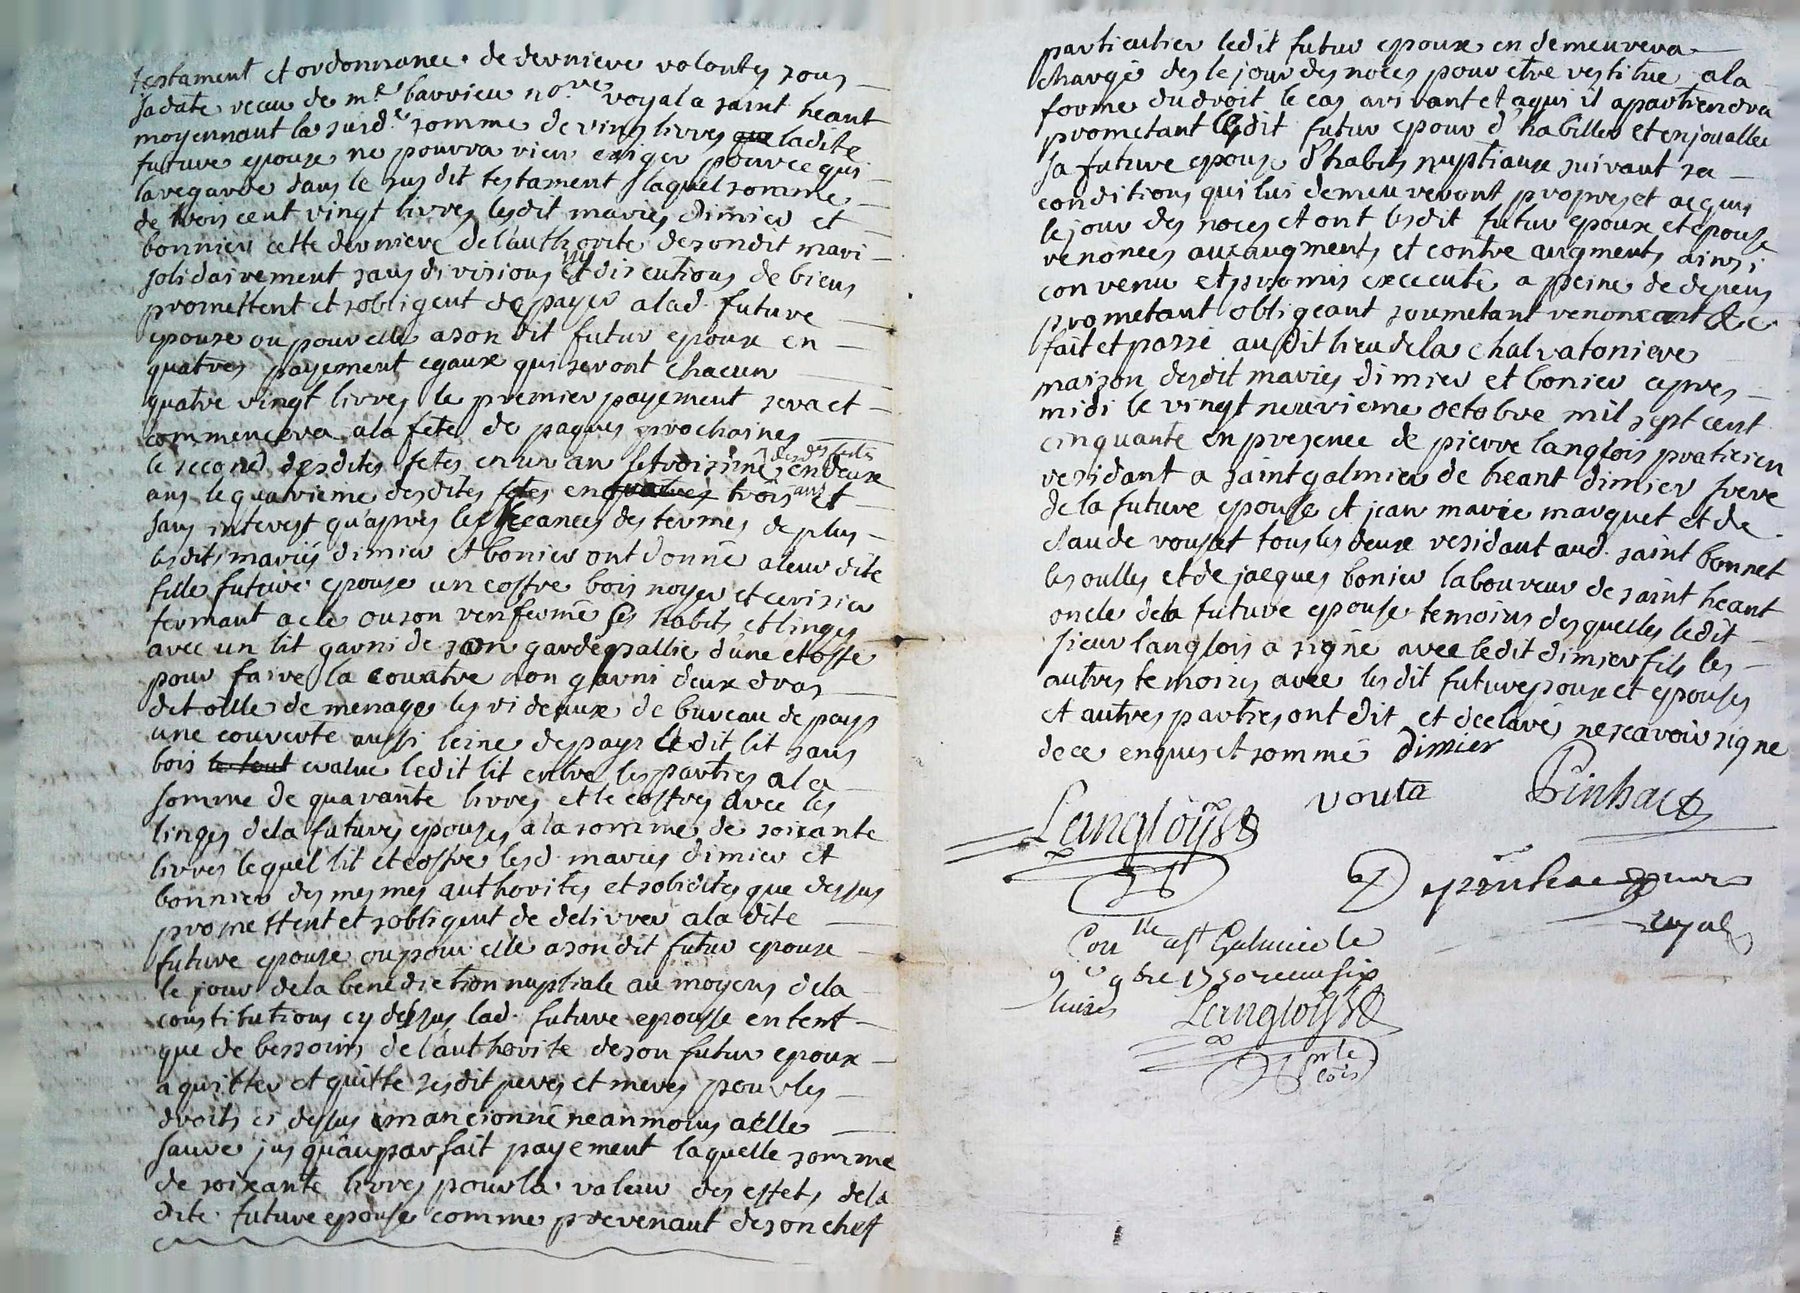 testament et ordonnance de derniere volontes sous
sa date recu de me barrieu nore royal a saint heant
moyennant la susde somme de vingt livres que ladite
future epouse ne pourra rien exiger pource qui
laregarde dans le susdit testament laquel somme
de trois cent vingt livres lesdit maries dimier et
bonnier cette derniere de lauthorite desondit mari
solidairement sans divisions ny discutions de biens
promettent et sobligent de payer alad. future
epouse ou pour elle ason dit futur epoux en
quatres payement egaux qui seront chacun
quatre vingt livres le premier payement sera et
commencera ala fete de paques prochaines
le second desdites fetes en un an le troisieme desdtes fetes en deux
ans le quatrieme desdites fetes en quatres trois ans et
sans interest qu'apres les echeances des termes de plus
lesdits maries dimier et bonier ont donné aleur dite
fille future epouse un coffre bois noyer et cerisier
fermant acle ou son renfermé ses habits et linges
avec un lit garni de son gardepallie d'une etoffe
pour faire la couatre non garni deux dras
detoille de menage les rideaux de bureau de pays
une couverte aussi leine depays ledit lit sans
bois le tout evalue ledit lit entre les partres a la
somme de quarante livres et le coffres avec les
linges dela futures epouses ala somme de soixante
livres lequel lit et coffre lesd. maries dimier et
bonnier des mesmes authorites et solidites que dessus
promettent et sobligent de delivrer ala dite
future epouse ou pour elle asondit futur epoux
le jour dela benediction nuptiale au moyens dela
constitutions cy dessus lad. future epouse entent
que de bessoins de lauthorite deson futur epoux
aquitter et quitte sesdit peres et meres pour les
droits ci dessus emancionné neanmoins aelle
sauve jusquau parfait payement laquelle somme
de soixante livres pour la valeur des effets dela
dite future epouse comme prevenant deson cheff
particulier ledit futur epoux en demeurera
chargé des le jour des noces pour etre restitue ala
forme du droit le cas arivant et aqui il apartiendra
prometant ledit futur epour d'habiller et enjoualler
sa future epouse d'habits nuptiaux suivant sa
conditions qui lui demeureront propres et acquis
le jour des noces et ont lesdit futur epoux et epouse
renonces aux augments et contre augments ainsi
convenu et promis excecuté a peine de depens
prometant obligeant soumetant renoncant &c
fait et passé audit lieu dela chalvatoniere
maison desdit maries dimier et bonier apres
midi le vingt neuvieme octobre mil sept cent
cinquante en presence de pierre langlois praticien
residant a saint galmier de heant dimier frere
de la future epouse et jean marie marquet et de
claude rousat tous les deux residant aud. saint bonnet
les oulles et de jacques bonier laboureur de saint heant
oncle dela future epouse temoins desquelles ledit
sieur langlois a signé avec ledit dimier fils les
autres temoins avec lesdit futur epoux et epouses
et autres partres ont dit et declaré ne scavoir signe
de ce enquis et sommé dimier
Langloiss vouta Pinhac
royal
Conlle a st Galmier le
9e 9bre 1750 receu six
livres
Langloiss